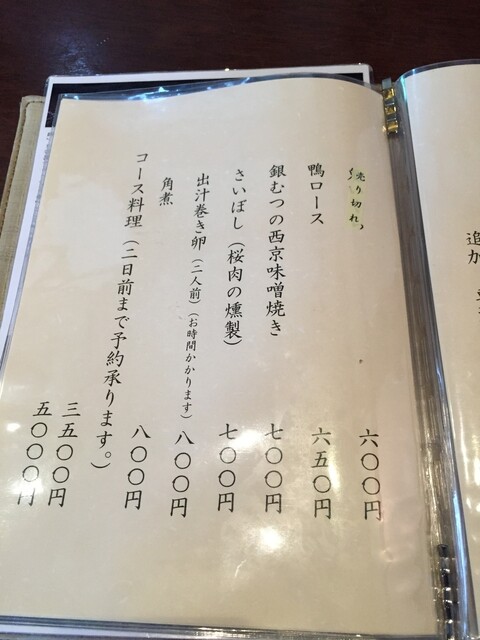 売り切れ 六〇〇円
鴨ロース 六五〇円
銀むつの西京味噌焼き 七〇〇円
さいぼし（桜肉の燻製） 七〇〇円
出汁巻き卵（二人前）（お時間かかります） 八〇〇円
角煮 八〇〇円
コース料理（二日前まで予約承ります。） 三五〇〇円
五〇〇〇円